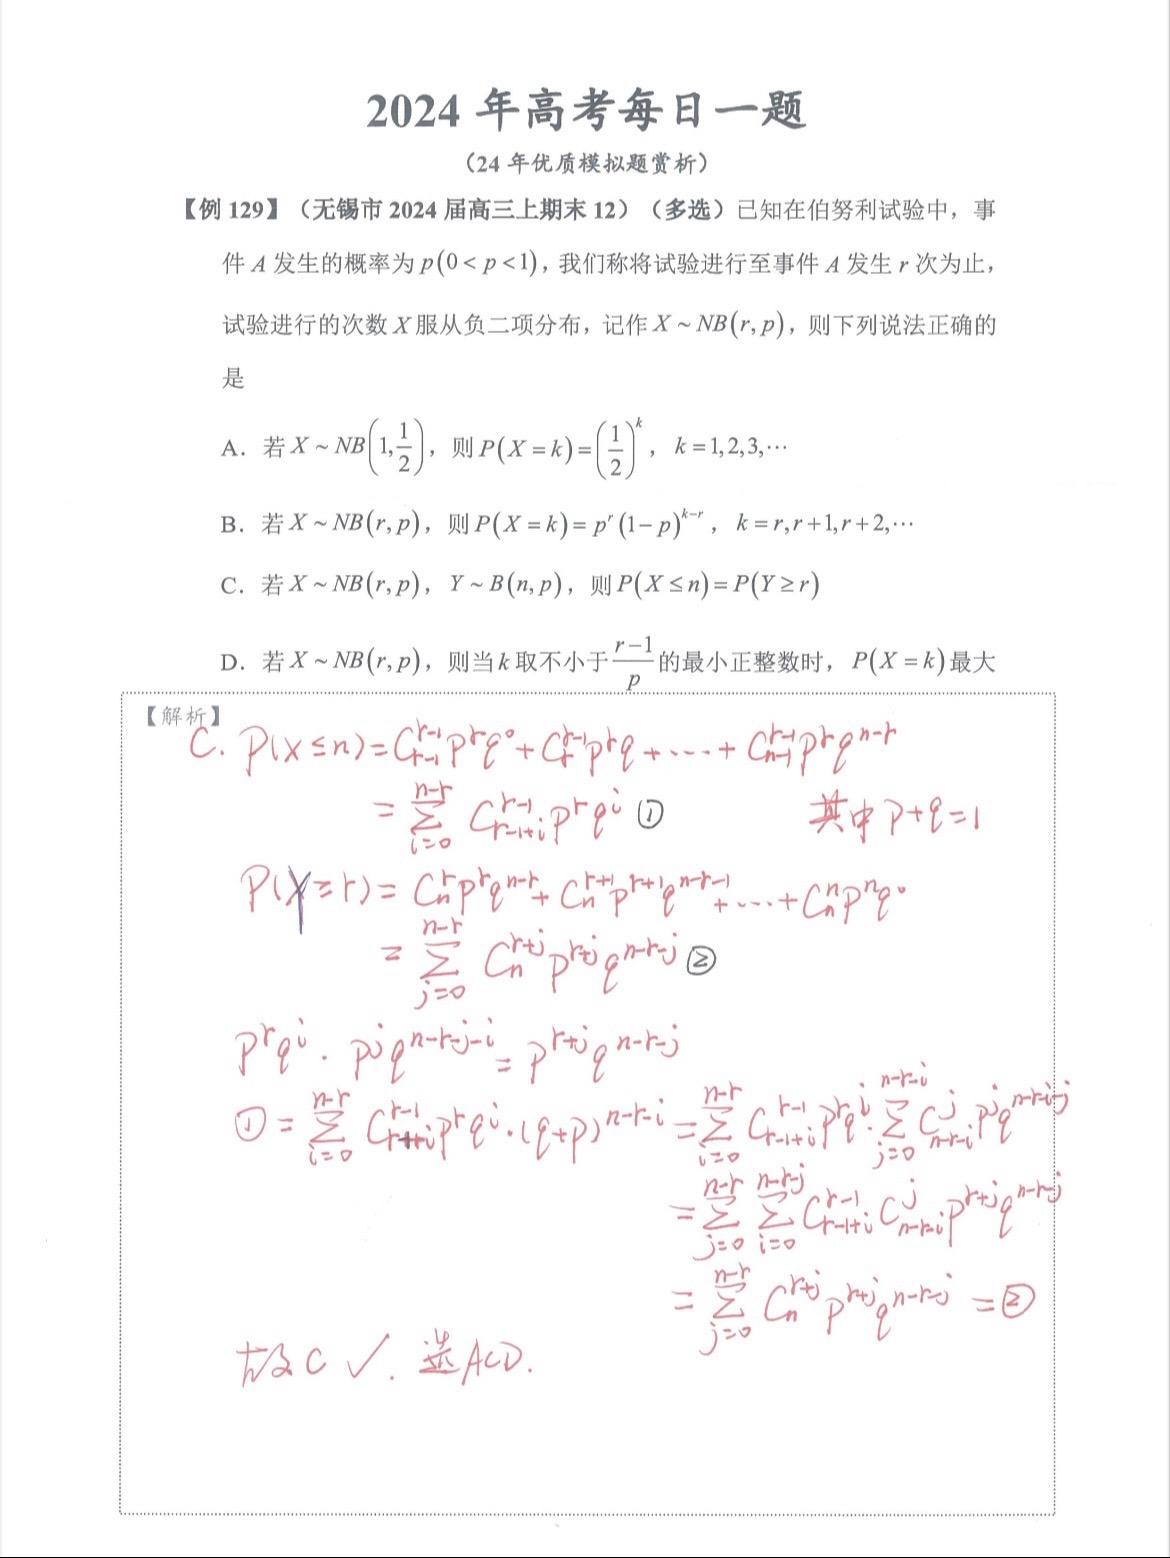 2024 年高考每日一题
（24 年优质模拟题赏析）
【例 129】（无锡市 2024 届高三上期末 12）（多选）已知在伯努利试验中，事
件 A 发生的概率为 p(0 < p < 1)，我们称将试验进行至事件 A 发生 r 次为止，
试验进行的次数 X 服从负二项分布，记作 X ~ NB(r, p)，则下列说法正确的
是
A．若 X ~ NB(1, 1/2)，则 P(X = k) = (1/2)^k，k = 1,2,3,⋯
B．若 X ~ NB(r, p)，则 P(X = k) = p^r (1−p)^{k−r}，k = r, r+1, r+2,⋯
C．若 X ~ NB(r, p)，Y ~ B(n, p)，则 P(X ≤ n) = P(Y ≥ r)
D．若 X ~ NB(r, p)，则当 k 取不小于 (r−1)/p 的最小正整数时，P(X = k) 最大
【解析】
C. P(X ≤ n) = C_{r-1}^{r-1} p^r q^0 + C_r^{r-1} p^r q + ⋯ + C_{n-1}^{r-1} p^r q^{n-r}
= ∑_{i=0}^{n-r} C_{r-1+i}^{r-1} p^r q^i ① 其中 p+q=1
P(Y ≥ r) = C_n^r p^r q^{n-r} + C_n^{r+1} p^{r+1} q^{n-r-1} + ⋯ + C_n^n p^n q^0
= ∑_{j=0}^{n-r} C_n^{r+j} p^{r+j} q^{n-r-j} ②
p^r q^i · p^j q^{n-r-j-i} = p^{r+j} q^{n-r-j}
① = ∑_{i=0}^{n-r} C_{r-1+i}^{r-1} p^r q^i · (q+p)^{n-r-i} = ∑_{i=0}^{n-r} C_{r-1+i}^{r-1} p^r q^i · ∑_{j=0}^{n-r-i} C_{n-r-i}^j p^j q^{n-r-i-j}
= ∑_{j=0}^{n-r} ∑_{i=0}^{n-r-j} C_{r-1+i}^{r-1} C_{n-r-i}^j p^{r+j} q^{n-r-j}
= ∑_{j=0}^{n-r} C_n^{r+j} p^{r+j} q^{n-r-j} = ②
故 C ✓. 选 ACD.